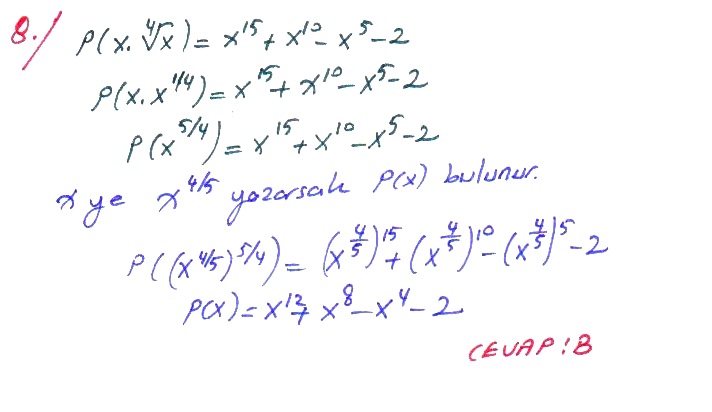 8./ P(x.∜x) = x¹⁵ + x¹⁰ - x⁵ - 2
P(x.x^1/4) = x¹⁵ + x¹⁰ - x⁵ - 2
P(x^5/4) = x¹⁵ + x¹⁰ - x⁵ - 2
x ye x^4/5 yazarsak P(x) bulunur.
P((x^4/5)^5/4) = (x^4/5)¹⁵ + (x^4/5)¹⁰ - (x^4/5)⁵ - 2
P(x) = x¹² + x⁸ - x⁴ - 2
CEVAP: B